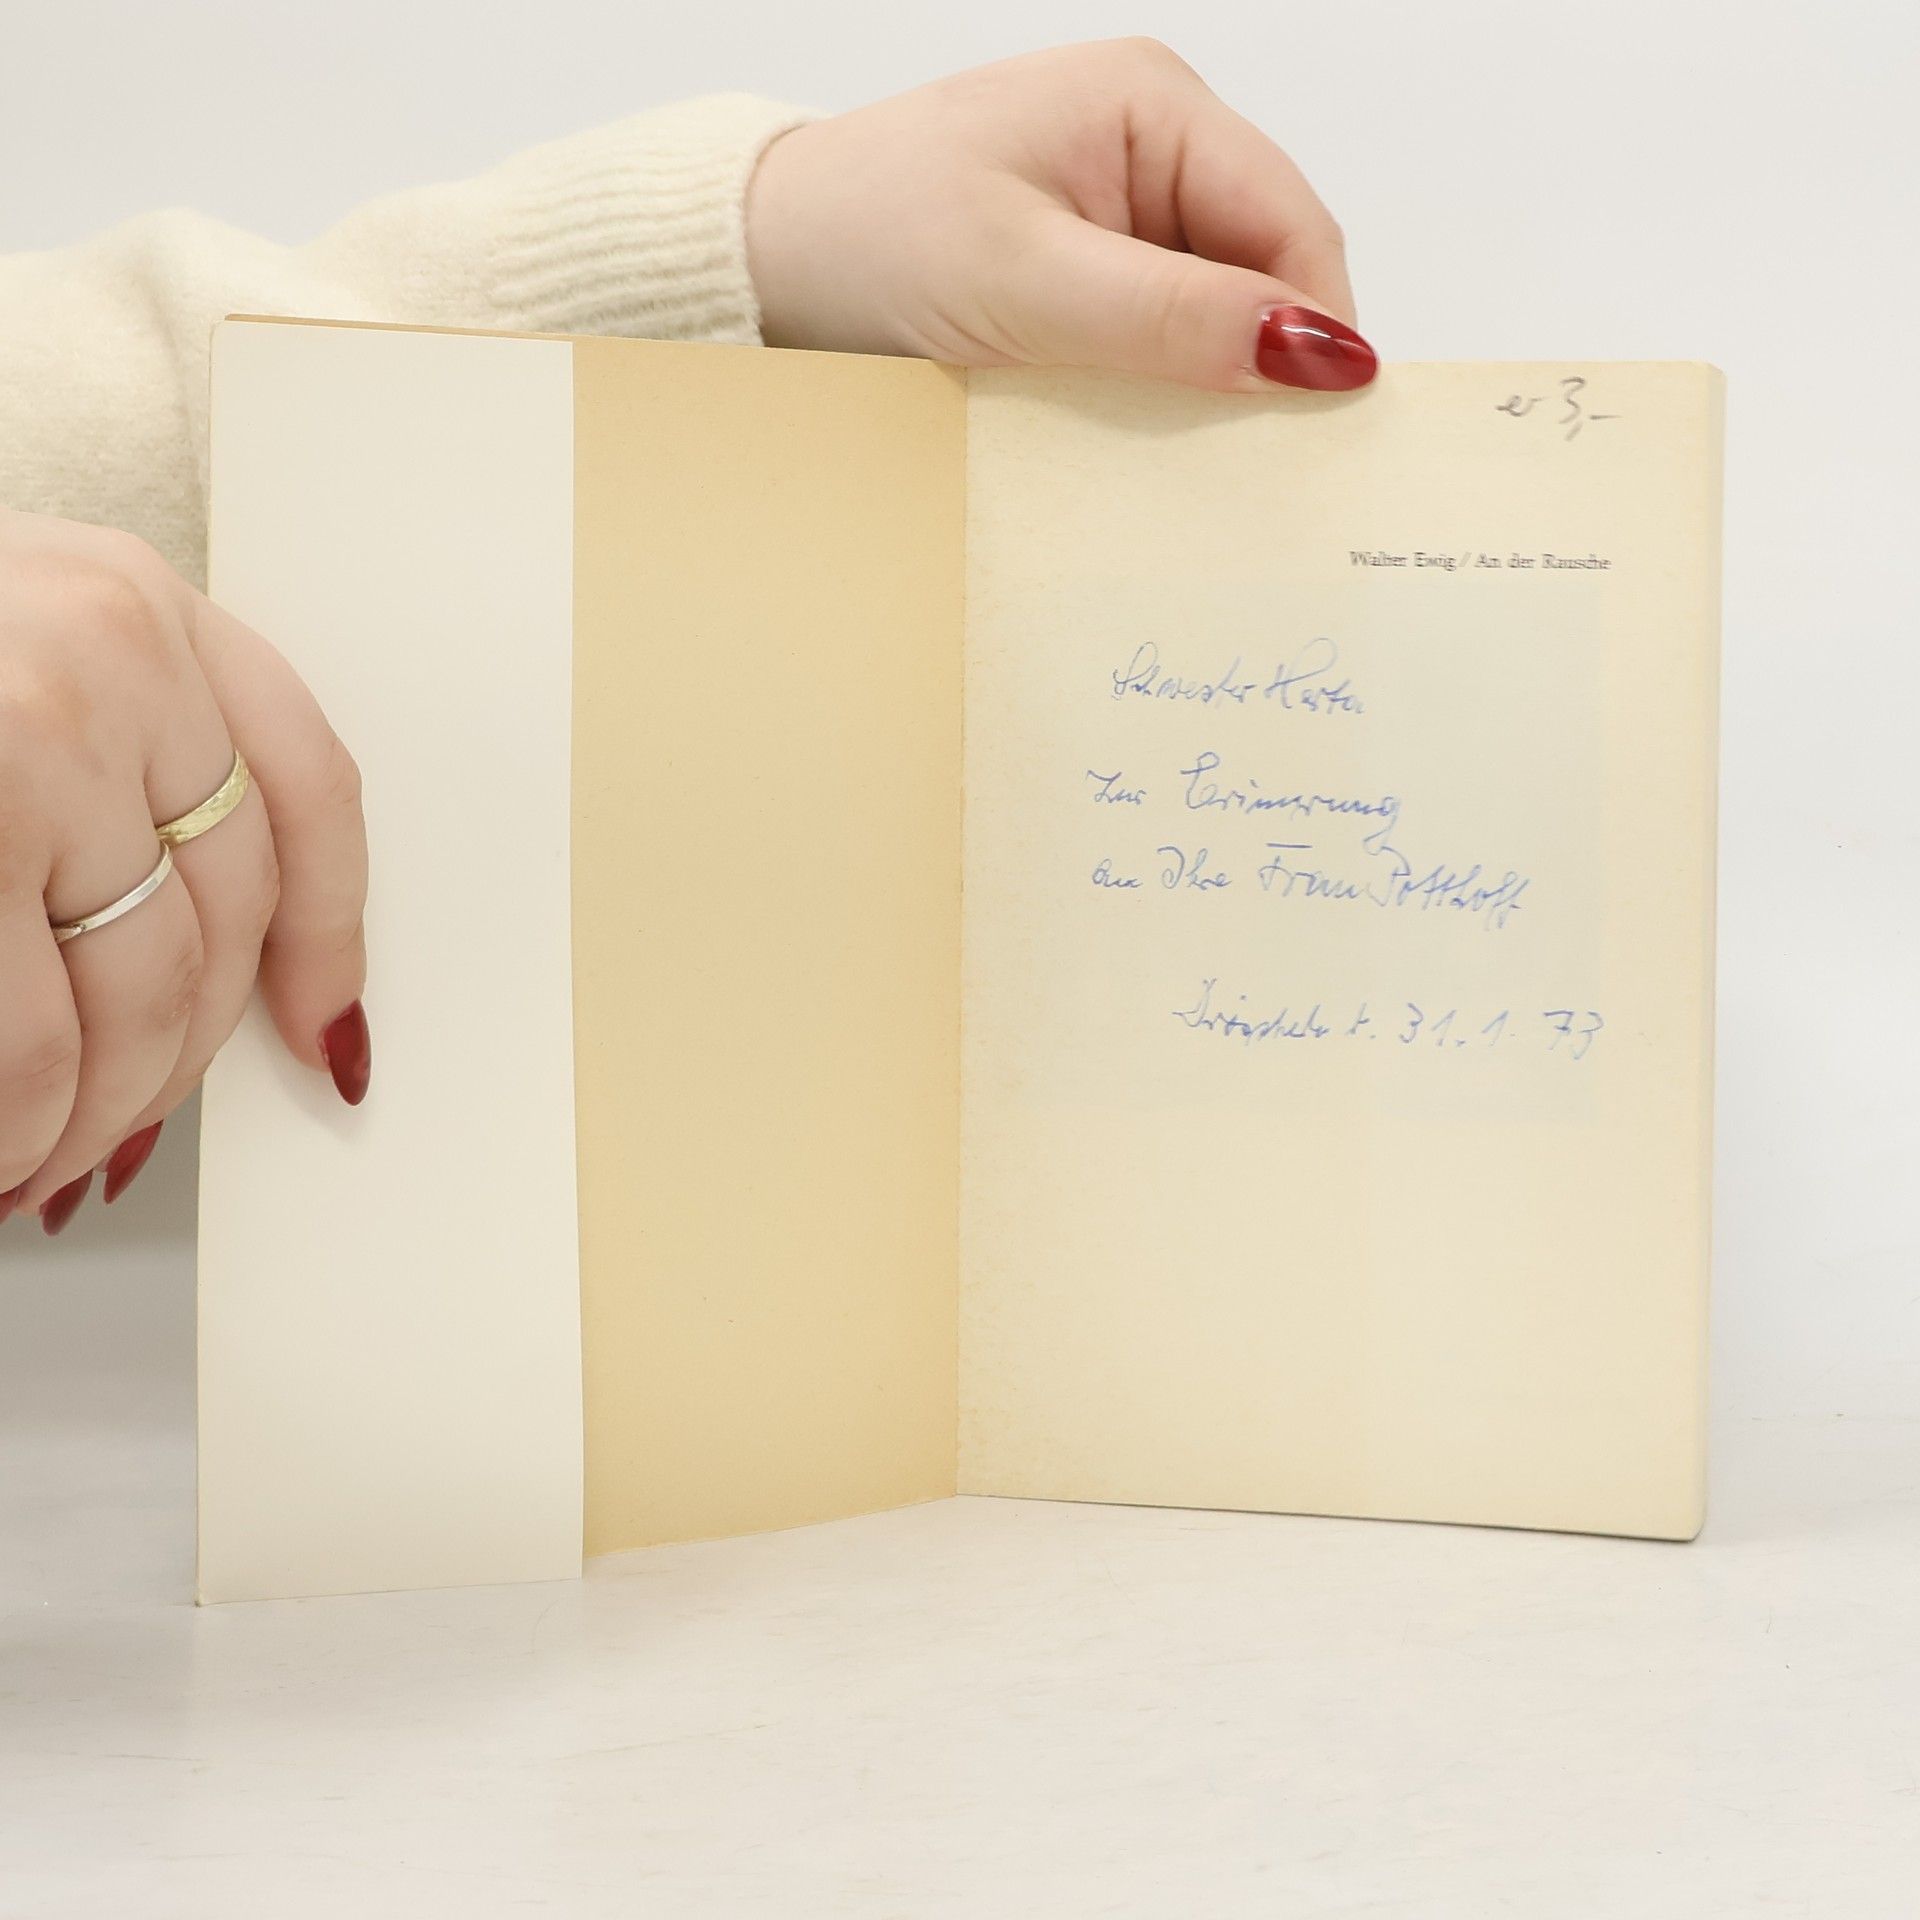 er 3,-
Walter Ewig / An der Rausche
Schwester Herta
Zur Erinnerung
an Ihre Frau Potthoff
31.1.73